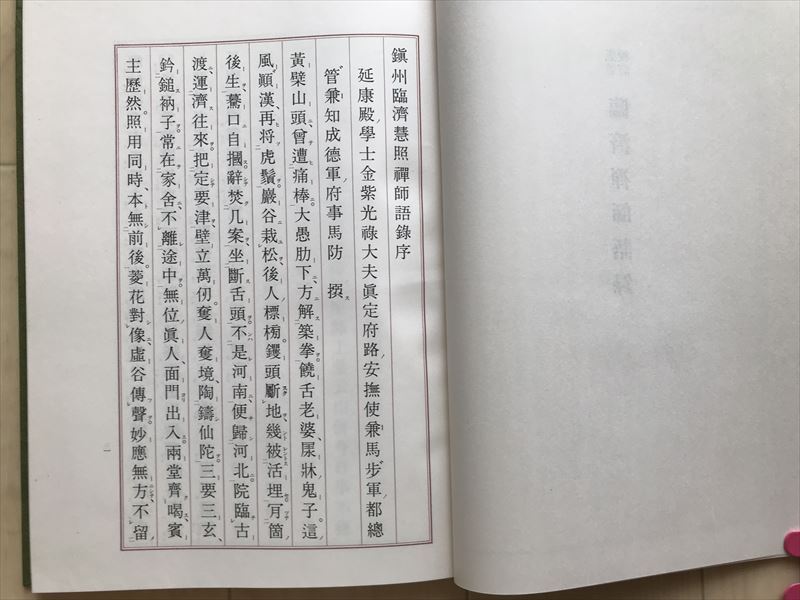 鎭州臨濟慧照禪師語錄序
延康殿學士金紫光祿大夫眞定府路安撫使兼馬步軍都總
管兼知成德軍府事馬防　撰
黃檗山頭曾遭痛棒大愚肋下方解築拳饒舌老婆尿牀鬼子這
風顚漢再捋虎鬚巖谷栽松後人標榜钁頭斸地幾被活埋肎箇
後生驀口自摑辭焚几案坐斷舌頭不是河南便歸河北院臨古
渡運濟往來把定要津壁立萬仞奪人奪境陶鑄仙陀三要三玄
鈐鎚衲子常在家舍不離途中無位眞人面門出入兩堂齊喝賓
主歷然照用同時本無前後菱花對像虛谷傳聲妙應無方不留
一